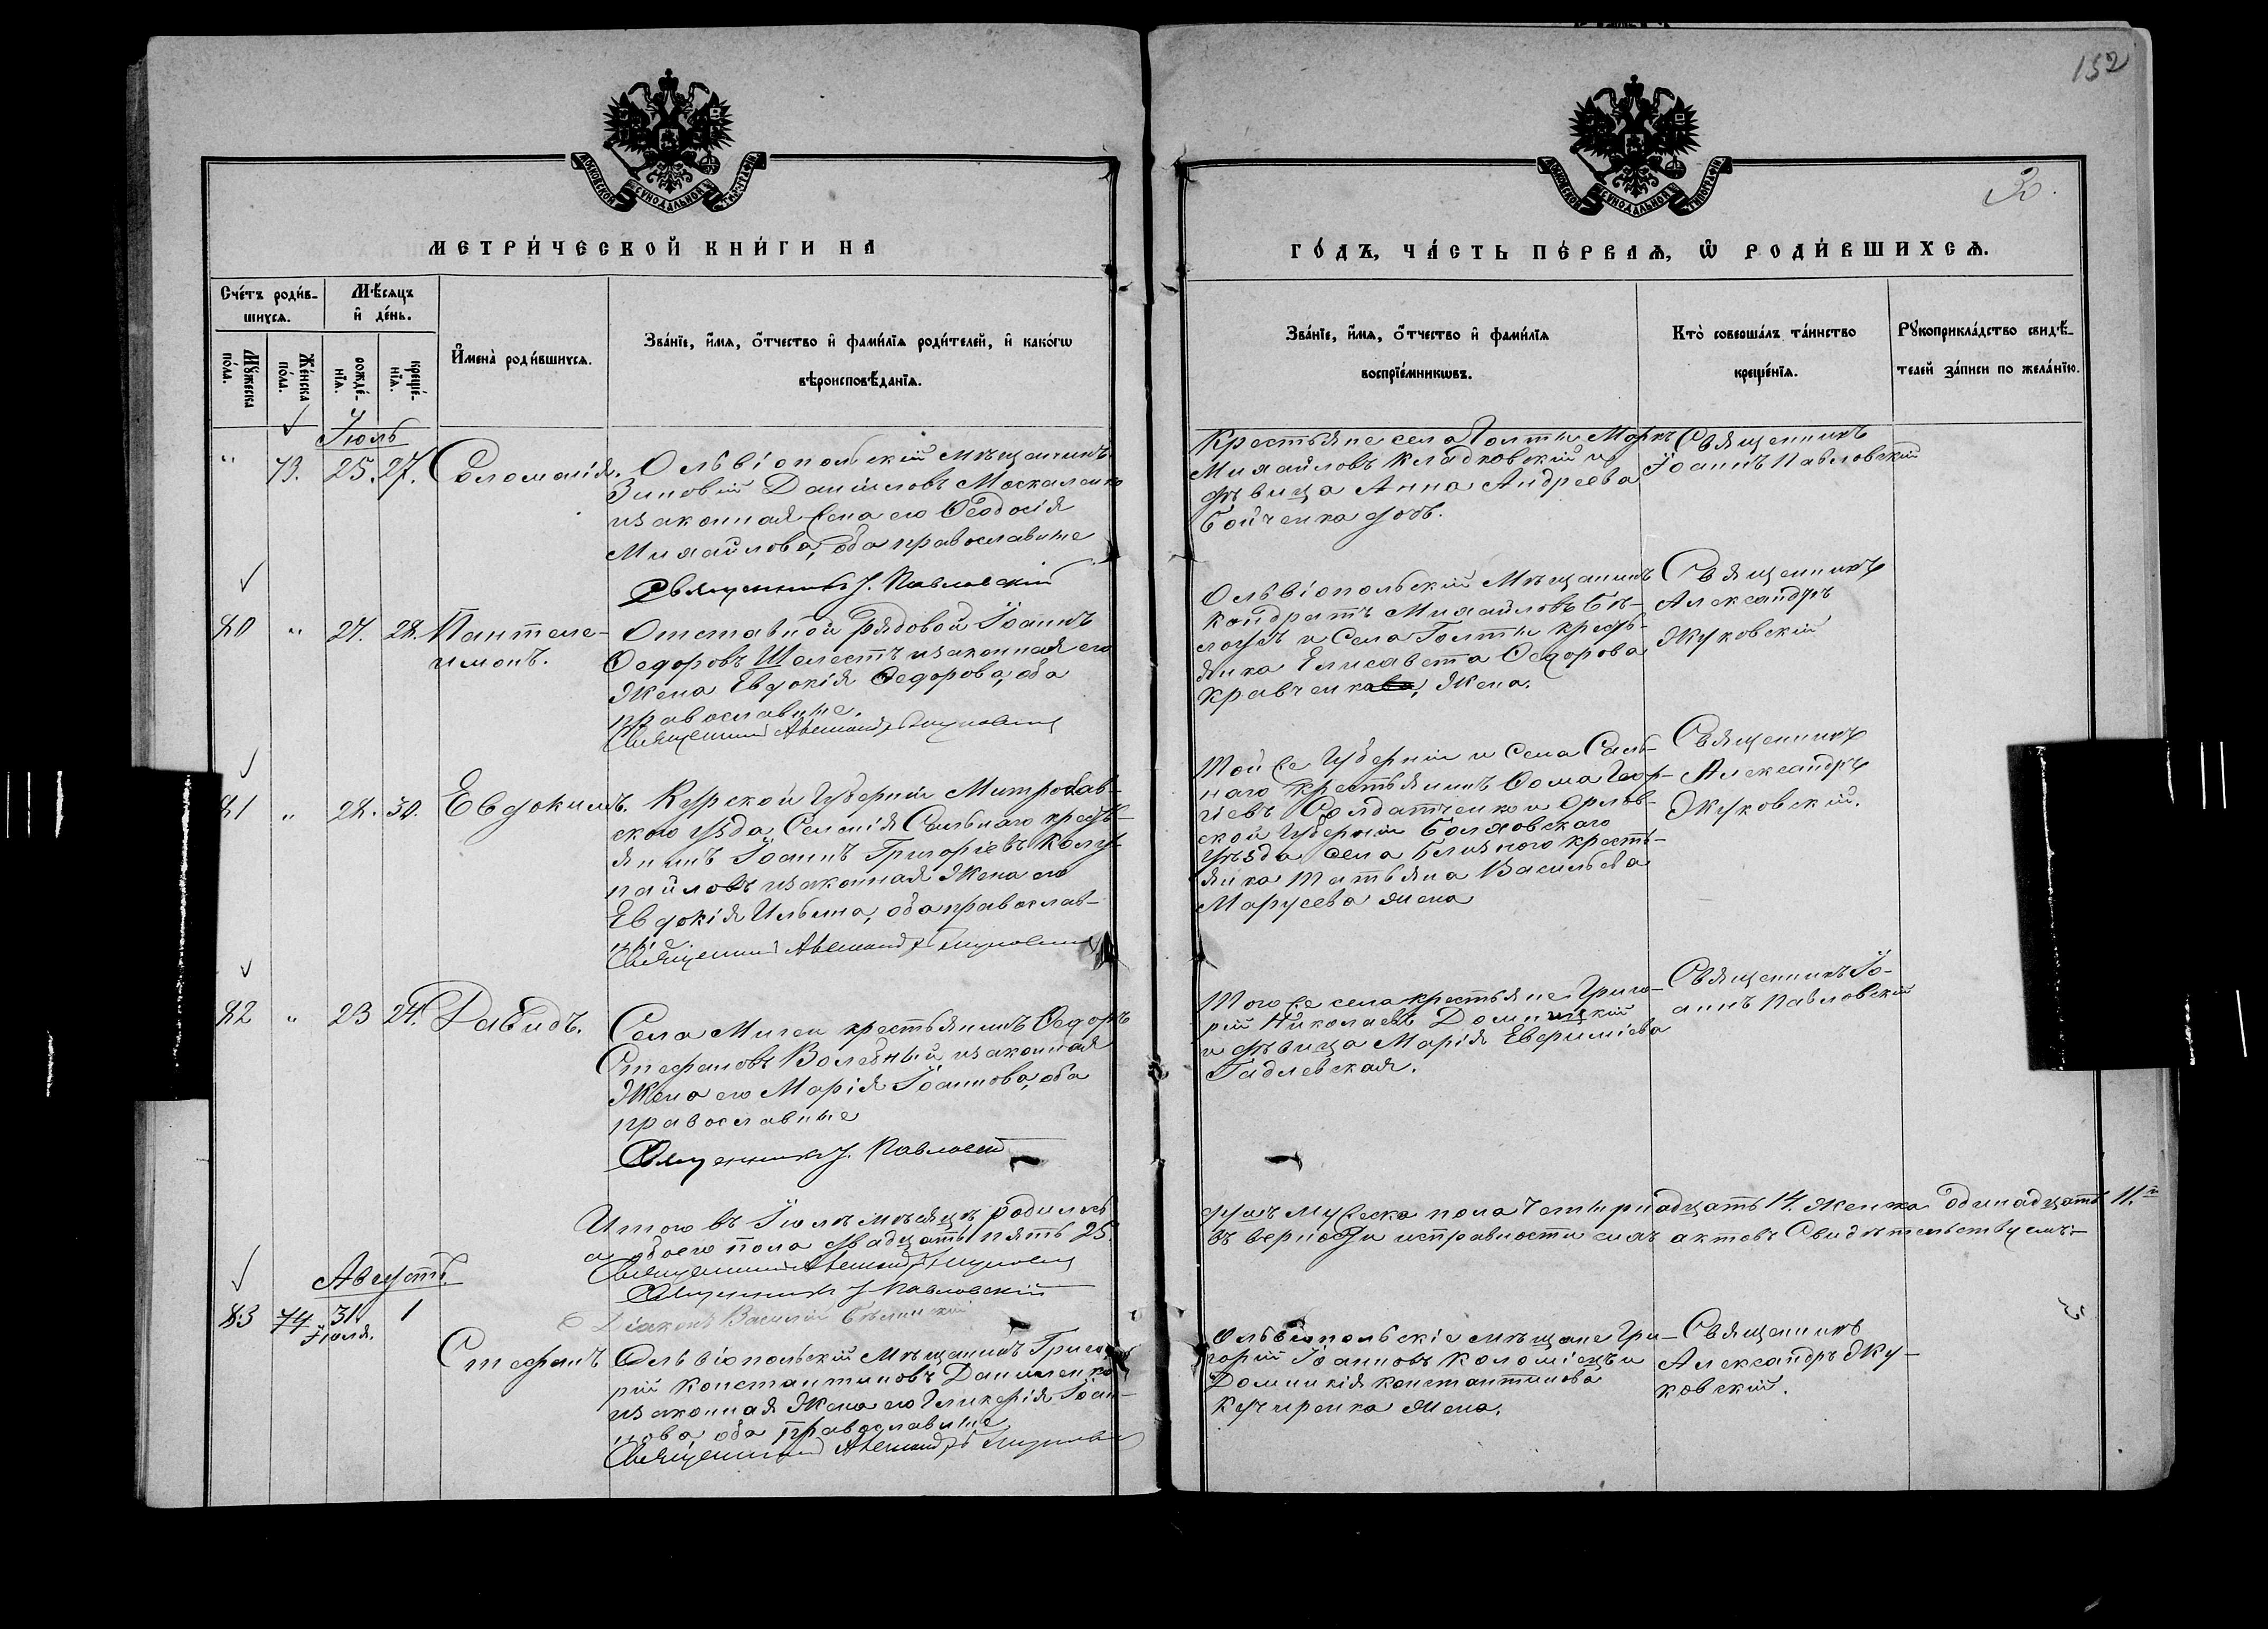 152
30.
МОСКОВСКОЙ СѴНОДАЛЬНОЙ ТИПОГРАФІИ
МОСКОВСКОЙ СѴНОДАЛЬНОЙ ТИПОГРАФІИ
МЕТРИ́ЧЕСКОЙ КНИ́ГИ НА
ГО́ДЪ, ЧА́СТЬ ПЕ́РВАѦ, Ѡ РОДИ́ВШИХСѦ.
Сче́тъ роди́в-
шихсѧ.
Мѣ́сѧцъ
и҆ де́нь.
Мꙋ́жеска
по́ла.
Же́нска
по́ла.
рожде́-
нїѧ.
креще́-
нїѧ.
И҆мена̀ роди́вшихсѧ.
Зва́нїе, и҆́мѧ, ѻ҆́тчество и҆ фами́лїѧ роди́телей, и҆ како́гѡ
вѣроисповѣ́данїѧ.
Зва́нїе, и҆́мѧ, ѻ҆́тчество и҆ фами́лїѧ
воспрїе́мникѡвъ.
Кто̀ соверша́лъ та́инство
креще́нїѧ.
Рꙋкоприкла́дство свидѣ́-
телей за́писи по жела́нїю.
Іюль
" 73. 25. 27. Соломонія.
Ольвіопольскій мѣщанинъ
Зиновій Даніиловъ Москаленко
и законная жена его Ѳеодосія
Михайлова, оба православные
Священникъ І. Павловскій
Крестьяне села Голты Маркъ
Михайловъ Кладковскій и
дѣвица Анна Андреева
Бойченка дочь.
Священникъ
Іоаннъ Павловскій
80 " 27. 28. Пантеле-
имонъ.
Отставной рядовой Іоаннъ
Ѳедоровъ Шелестъ и законная его
жена Евдокія Ѳедорова, оба
православные.
Священникъ Александръ Жуковскій
Ольвіопольскій мѣщанинъ
Кондратъ Михайловъ Бѣ-
лоусъ и села Голты кресть-
янка Елисавета Ѳедорова
Кравченка, жена.
Священникъ
Александръ
Жуковскій
81 " 28. 30. Евдокимъ.
Курской губерніи Митровав-
скаго уѣзда, Селенія Сальнаго кресть-
янинъ Іоаннъ Григоріевъ
и законная жена его
Евдокія Ильина, оба православ-
ные
Священникъ Александръ Жуковскій
Той же губерніи и села Саль-
наго крестьянинъ Ѳома Геор-
гіевъ Солдатченко и Орлов-
ской губерніи Болховскаго
уѣзда села крестъ-
янка Татьяна Васильева
Марусева жена
Священникъ
Александръ
Жуковскій.
82 " 23 24. Давидъ.
Села Мигеи крестьянинъ Ѳедоръ
Стефановъ и законная
жена его Марія Іоаннова, оба
православные
Священникъ І. Павловскій
Того же села крестьяне Григо-
рій Николаевъ Доминцкій
и дѣвица Марія Евфиміева
Гадлевская.
Священникъ Іо-
аннъ Павловскій
Итого въ Іюлѣ мѣсяцѣ родилось
обоего пола двадцать пять 25.
душъ мужеска пола четырнадцать 14. женска одинадцать 11.й
въ вѣрности и исправности сихъ актовъ свидѣтельствуемъ:
Священникъ Александръ Жуковскій
Священникъ І. Павловскій
Діаконъ Василій
Августъ.
83 74 31 Іюля. 1
Стефанъ
Ольвіопольскій мѣщанинъ Григо-
рій Константиновъ Даниленко
и законная жена его Гликерія Іоан-
нова оба православные
Священникъ Александръ Жуковскій
Ольвіопольскіе мѣщане Гри-
горій Іоанновъ Коломіецъ и
Домникія Константинова
Кучиренка жена.
Священникъ
Александръ Жу-
ковскій.